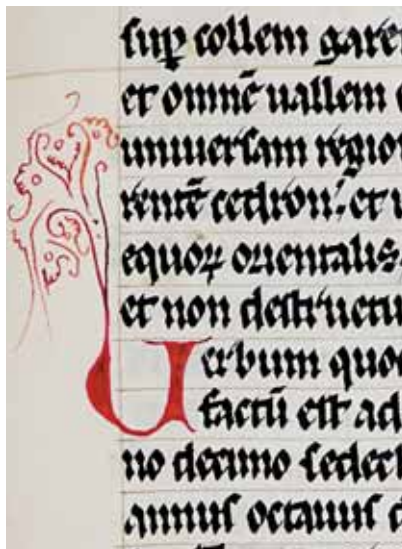 suꝑ collem gare
et omnē uallem c
uniuersam regio
rentē cedron. et u
equoꝝ orientalis.
et non destruetu
Uerbum quo
factū est ad
no decimo sedech
annus octauus d